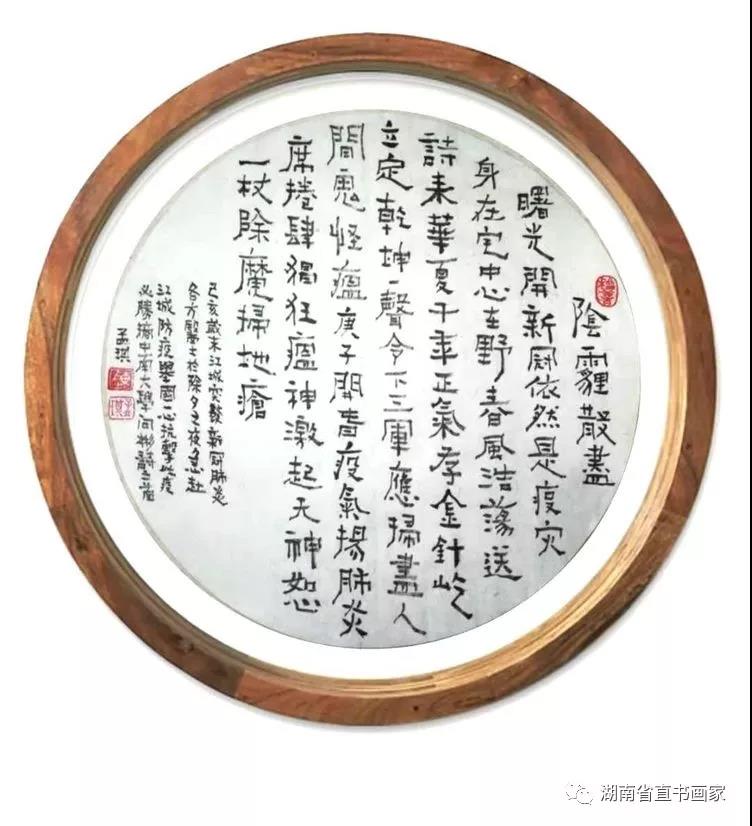 陰霾散盡
曙光開新冠依然是疫灾
身在宅中心在野春風浩蕩送
詩来華夏千年正氣存金針屹
立定乾坤一聲令下三軍應掃盡人
間鬼怪瘟庚子開春疫氣揚肺炎
席捲肆獨狂瘟神激起天神怒
一杖除魔掃地瘡
己亥歲末江城突發新冠肺炎
各方醫士於除夕之夜急赴
江城防疫舉國一心抗擊此疫
必勝摘中南大學向彬詩三首
孟琪
湖南省直书画家